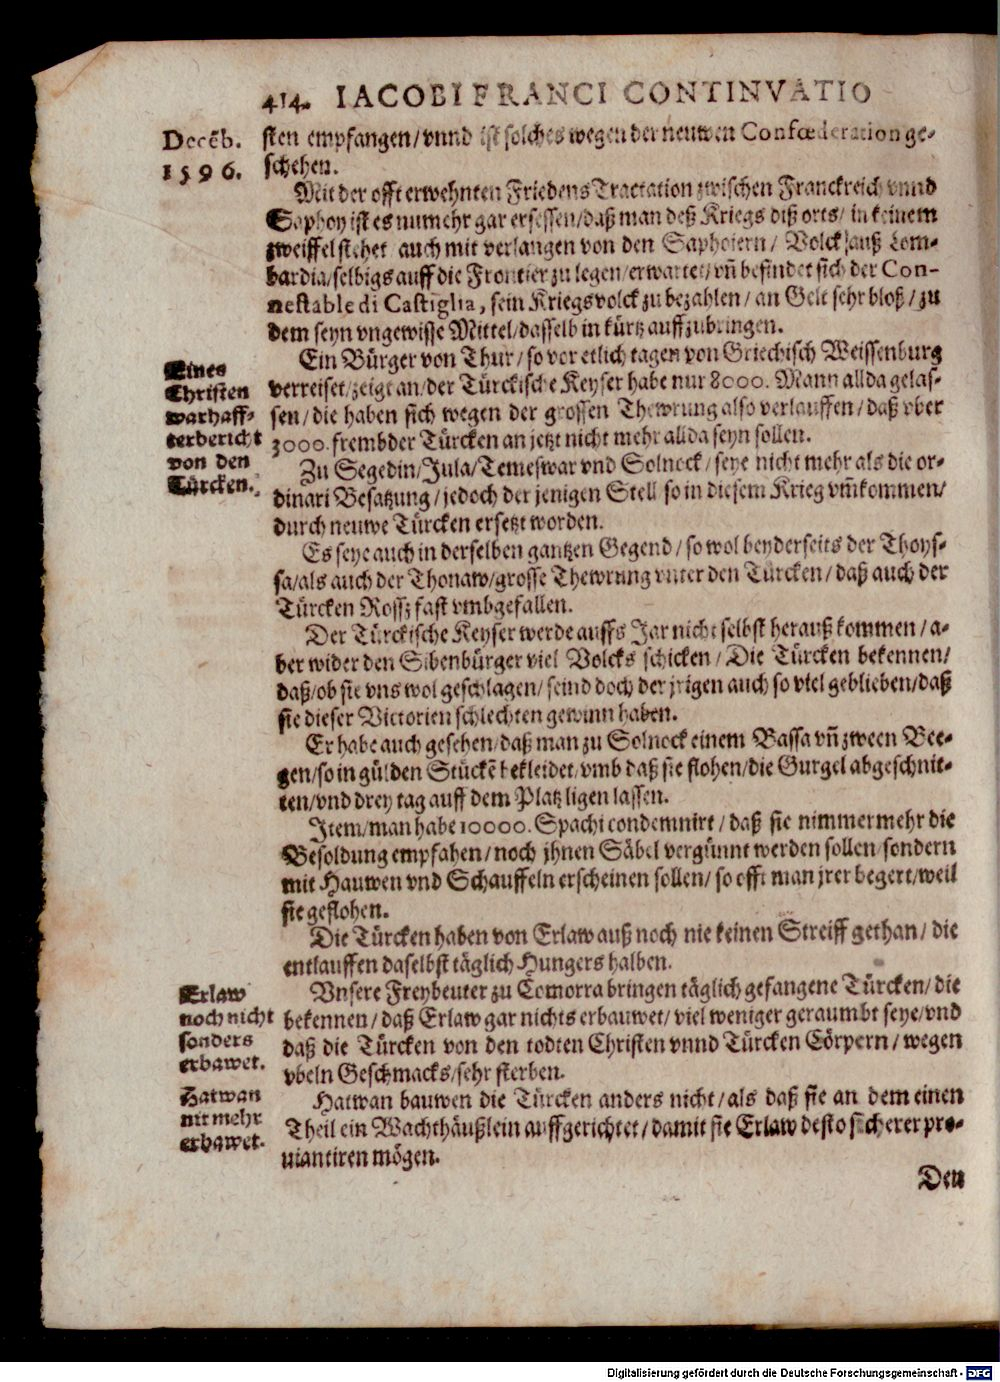 414. IACOBI FRANCI CONTINVATIO
Decēb.
1596.
sten empfangen/ vnnd ist solches wegen der neuwen Confœderation ge-
schehen.
Mit der offt erwehnten Friedens Tractation zwischen Franckreich vnnd
Saphoy ist es numehr gar ersessen/ daß man deß Kriegs diß orts/ in keinem
zweiffel stehet auch mit verlangen von den Saphoiern/ Volck auß Lom-
bardia/ selbigs auff die Frontier zu legen/ erwartet/ vñ befindet sich der Con-
nestable di Castiglia, sein Kriegsvolck zu bezahlen/ an Gelt sehr bloß/ zu
dem seyn vngewisse Mittel/ dasselb in kürtz auffzubringen.
Eines
Christen
warhaff-
terbericht
von den
Türcken.
Ein Bürger von Thur/ so vor etlich tagen von Griechisch Weissenburg
verreiset/ zeigt an/ der Türckische Keyser habe nur 8000. Mann allda gelas-
sen/ die haben sich wegen der grossen Thewrung also verlauffen/ daß vber
3000. frembder Türcken an jetzt nicht mehr allda seyn sollen.
Zu Segedin/ Jula/ Temeswar vnd Solnock/ seye nicht mehr als die or-
dinari Besatzung/ jedoch der jenigen Stell so in diesem Krieg vm̃kommen/
durch neuwe Türcken ersetzt worden.
Es seye auch in derselben gantzen Gegend/ so wol beyderseits der Thoys-
sa/ als auch der Thonaw/ grosse Thewrung vnter den Türcken/ daß auch der
Türcken Rossz fast vmbgefallen.
Der Türckische Keyser werde auffs Jar nicht selbst herauß kommen/ a-
ber wider den Sibenbürger viel Volcks schicken/ Die Türcken bekennen/
daß/ ob sie vns wol geschlagen/ seind doch der jrigen auch so viel geblieben/ daß
sie dieser Victorien schlechten gewinn haben.
Er habe auch gesehen/ daß man zu Solnock einem Bassa vñ zween Bee-
gen/ so in gülden Stückē bekleidet/ vmb daß sie flohen/ die Gurgel abgeschnit-
ten/ vnd drey tag auff dem Platz ligen lassen.
Item/ man habe 10000. Spachi condemnirt/ daß sie nimmermehr die
Besoldung empfahen/ noch jhnen Säbel vergünnt werden sollen/ sondern
mit Hauwen vnd Schauffeln erscheinen sollen/ so offt man jrer begert/ weil
sie geflohen.
Die Türcken haben von Erlaw auß noch nie keinen Streiff gethan/ die
entlauffen daselbst täglich Hungers halben.
Erlaw
noch nicht
sonders
erbawet.
Vnsere Freybeuter zu Comorra bringen täglich gefangene Türcken/ die
bekennen/ daß Erlaw gar nichts erbauwet/ viel weniger geraumbt seye/ vnd
daß die Türcken von den todten Christen vnnd Türcken Cörpern/ wegen
vbeln Geschmacks/ sehr sterben.
Hatwan
nit mehr
erbawet.
Hatwan bauwen die Türcken anders nicht/ als daß sie an dem einen
Theil ein Wachthäußlein auffgerichtet/ damit sie Erlaw desto sicherer pro-
uiantiren mögen.
Den
Digitalisierung gefördert durch die Deutsche Forschungsgemeinschaft - DFG